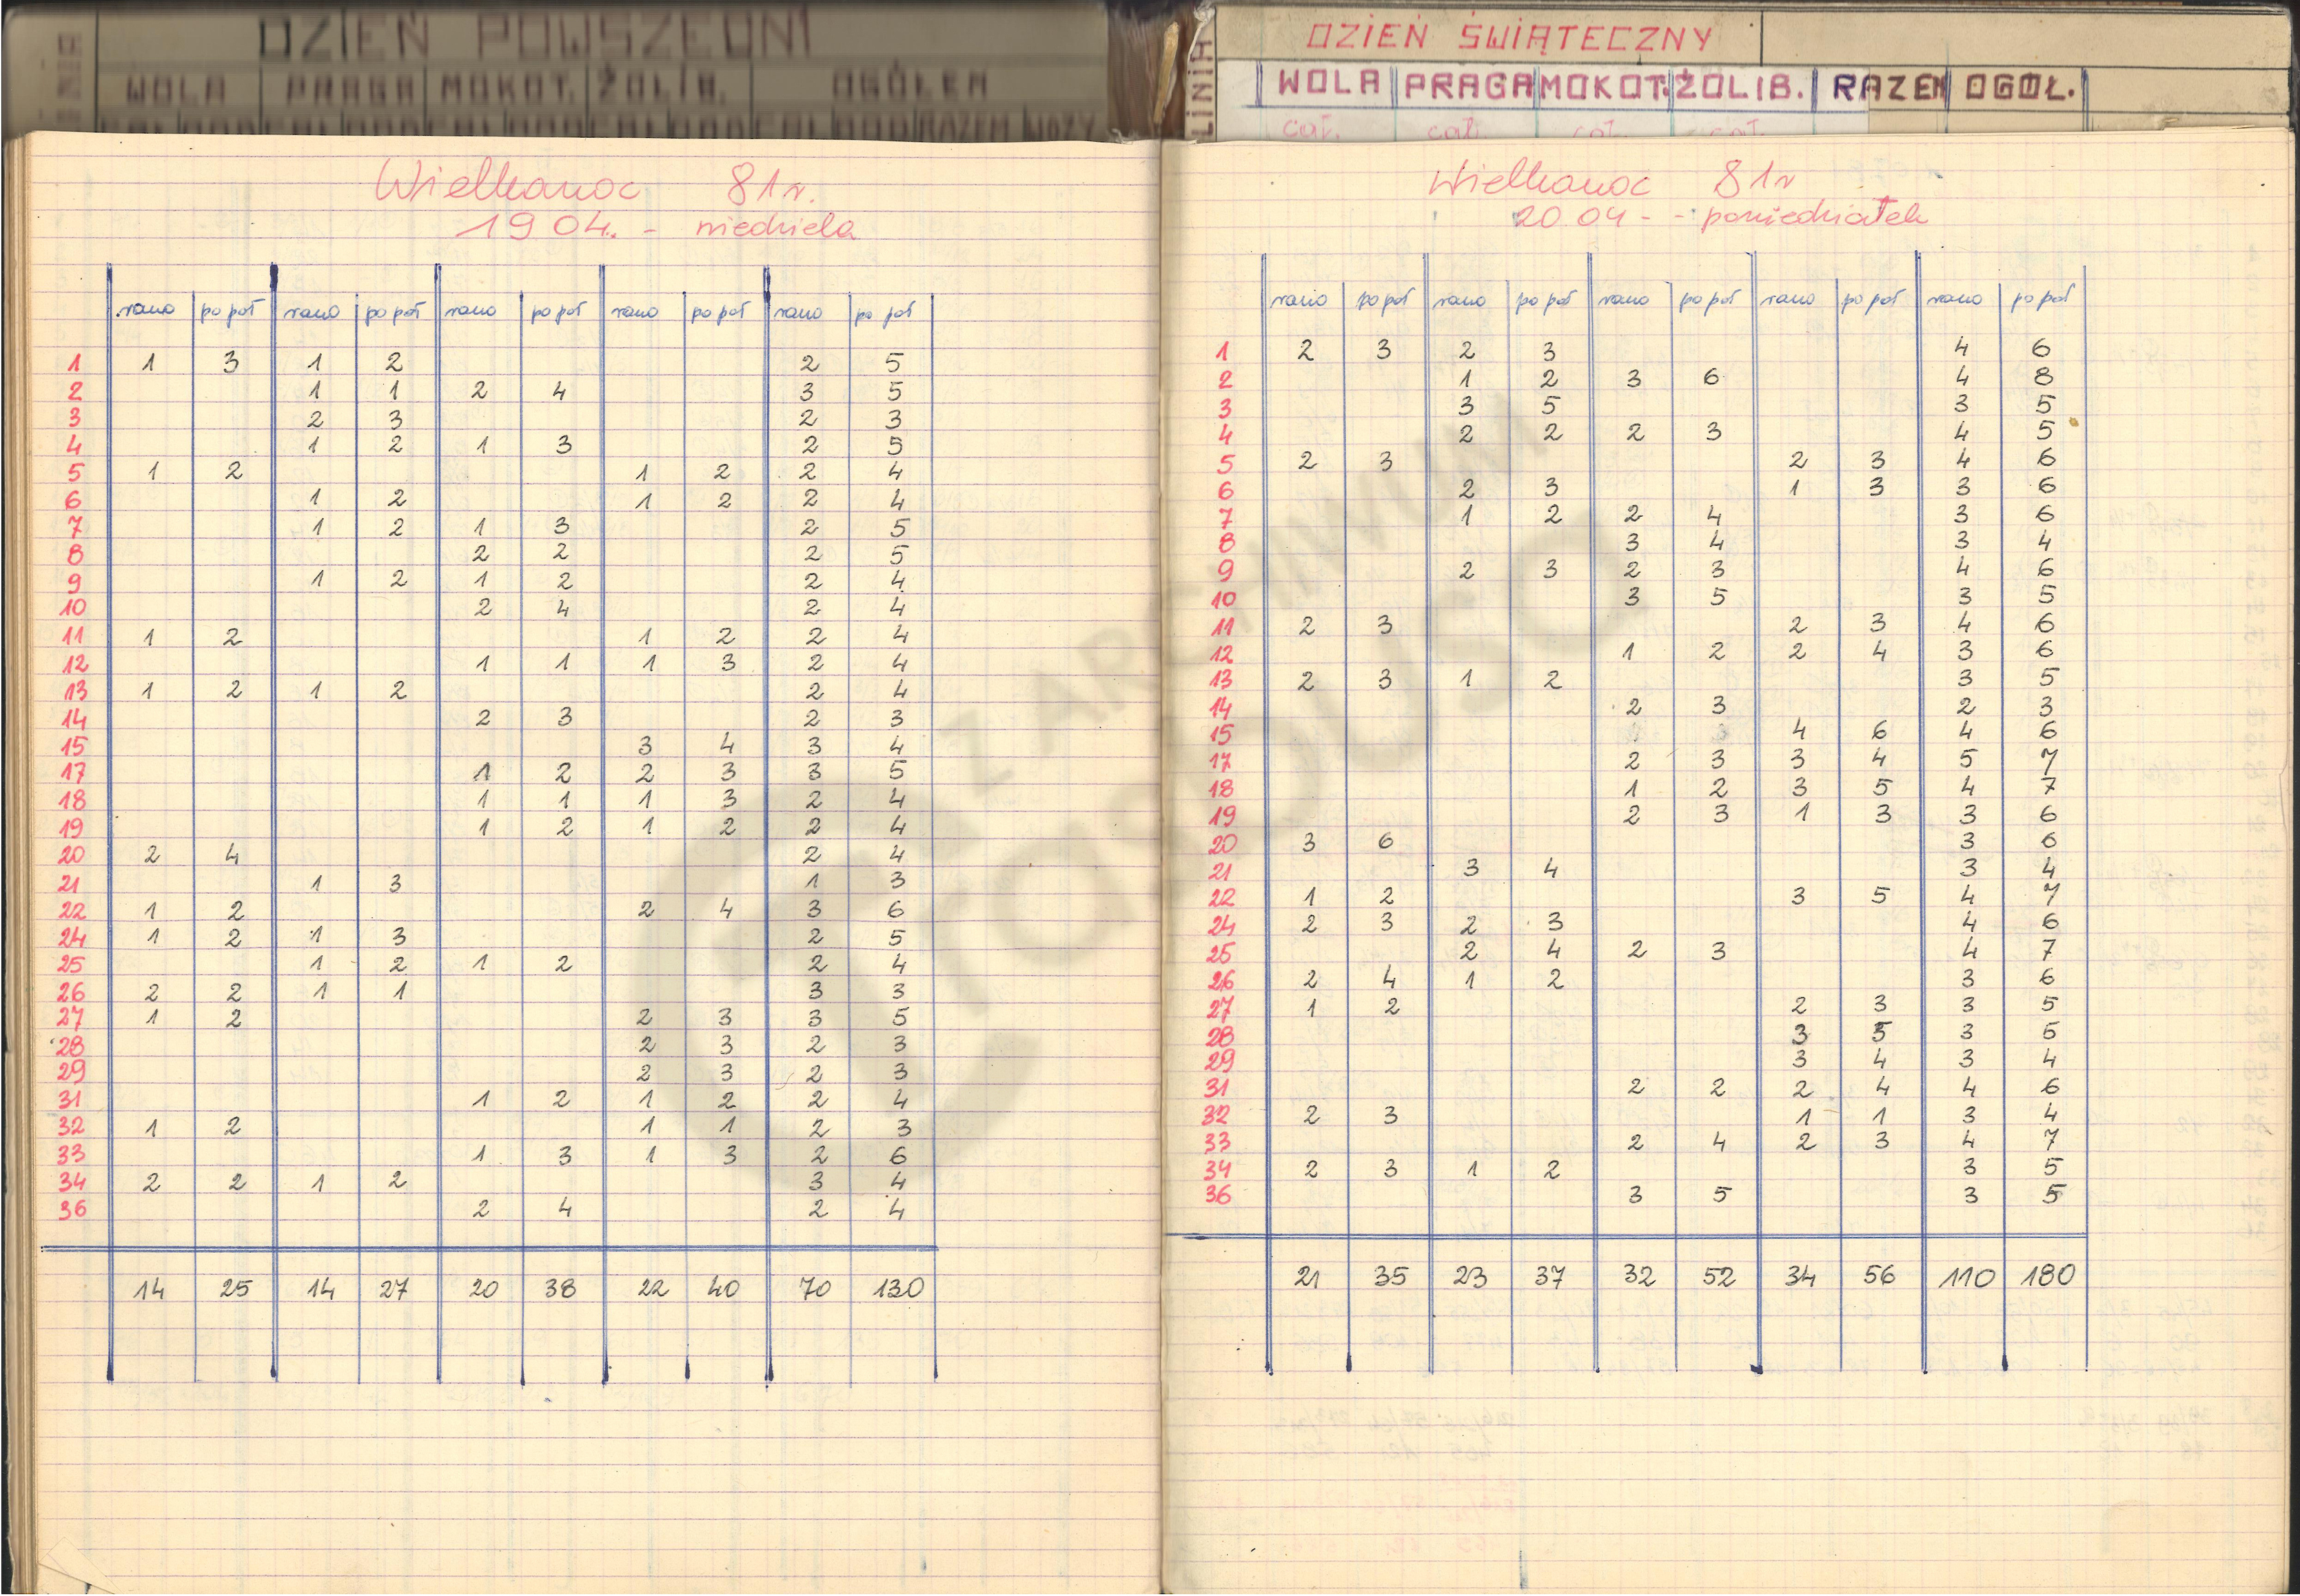 DZIEŃ POWSZEDNI
WOLA PRAGA MOKOT. ŻOLIB. OGÓŁEM
RAZEM WOZY
Wielkanoc 81r.
19 04. - niedziela
rano po poł rano po poł rano po poł rano po poł rano po poł
1 1 3 1 2 2 5
2 1 1 2 4 3 5
3 2 3 2 3
4 1 2 1 3 2 5
5 1 2 1 2 2 4
6 1 2 1 2 2 4
7 1 2 1 3 2 5
8 2 2 2 5
9 1 2 1 2 2 4
10 2 4 2 4
11 1 2 1 2 2 4
12 1 1 1 3 2 4
13 1 2 1 2 2 4
14 2 3 2 3
15 3 4 3 4
17 1 2 2 3 3 5
18 1 1 1 3 2 4
19 1 2 1 2 2 4
20 2 4 2 4
21 1 3 1 3
22 1 2 2 4 3 6
24 1 2 1 3 2 5
25 1 2 1 2 2 4
26 2 2 1 1 3 3
27 1 2 2 3 3 5
28 2 3 2 3
29 2 3 2 3
31 1 2 1 2 2 4
32 1 2 1 1 2 3
33 1 3 1 3 2 6
34 2 2 1 2 3 4
36 2 4 2 4
14 25 14 27 20 38 22 40 70 130
LINIA
DZIEŃ ŚWIĄTECZNY
WOLA PRAGA MOKOT. ŻOLIB. RAZEM OGÓŁ.
cał. cał. cał. cał.
Wielkanoc 81r
20 04 - - poniedziałek
rano po poł rano po poł rano po poł rano po poł rano po poł
1 2 3 2 3 4 6
2 1 2 3 6 4 8
3 3 5 3 5
4 2 2 2 3 4 5
5 2 3 2 3 4 6
6 2 3 1 3 3 6
7 1 2 2 4 3 6
8 3 4 3 4
9 2 3 2 3 4 6
10 3 5 3 5
11 2 3 2 3 4 6
12 1 2 2 4 3 6
13 2 3 1 2 3 5
14 2 3 2 3
15 4 6 4 6
17 2 3 3 4 5 7
18 1 2 3 5 4 7
19 2 3 1 3 3 6
20 3 6 3 6
21 3 4 3 4
22 1 2 3 5 4 7
24 2 3 2 3 4 6
25 2 4 2 3 4 7
26 2 4 1 2 3 6
27 1 2 2 3 3 5
28 3 5 3 5
29 3 4 3 4
31 2 2 2 4 4 6
32 2 3 1 1 3 4
33 2 4 2 3 4 7
34 2 3 1 2 3 5
36 3 5 3 5
21 35 23 37 32 52 34 56 110 180
Z ARCHIWUM